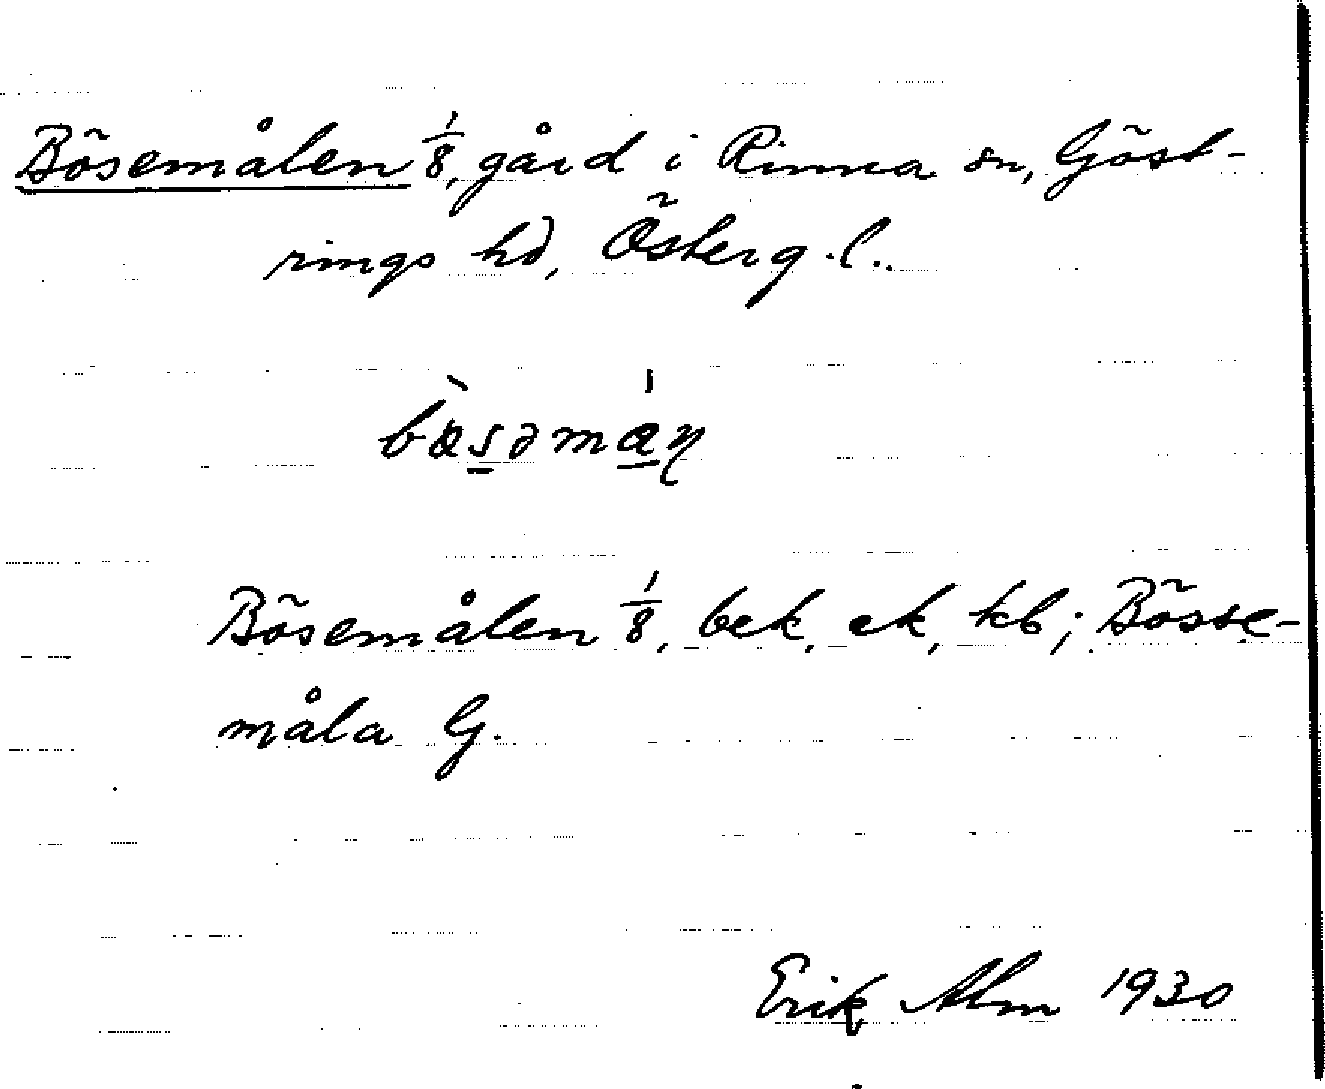 Bösemålen 1/8, gård i Rinna sn, Göst-
rings hd, Österg. l.
bɷ̀sәmåη
Bösemålen 1/8, bek, ek, kb; Bösse-
måla G.
Erik Alm 1930